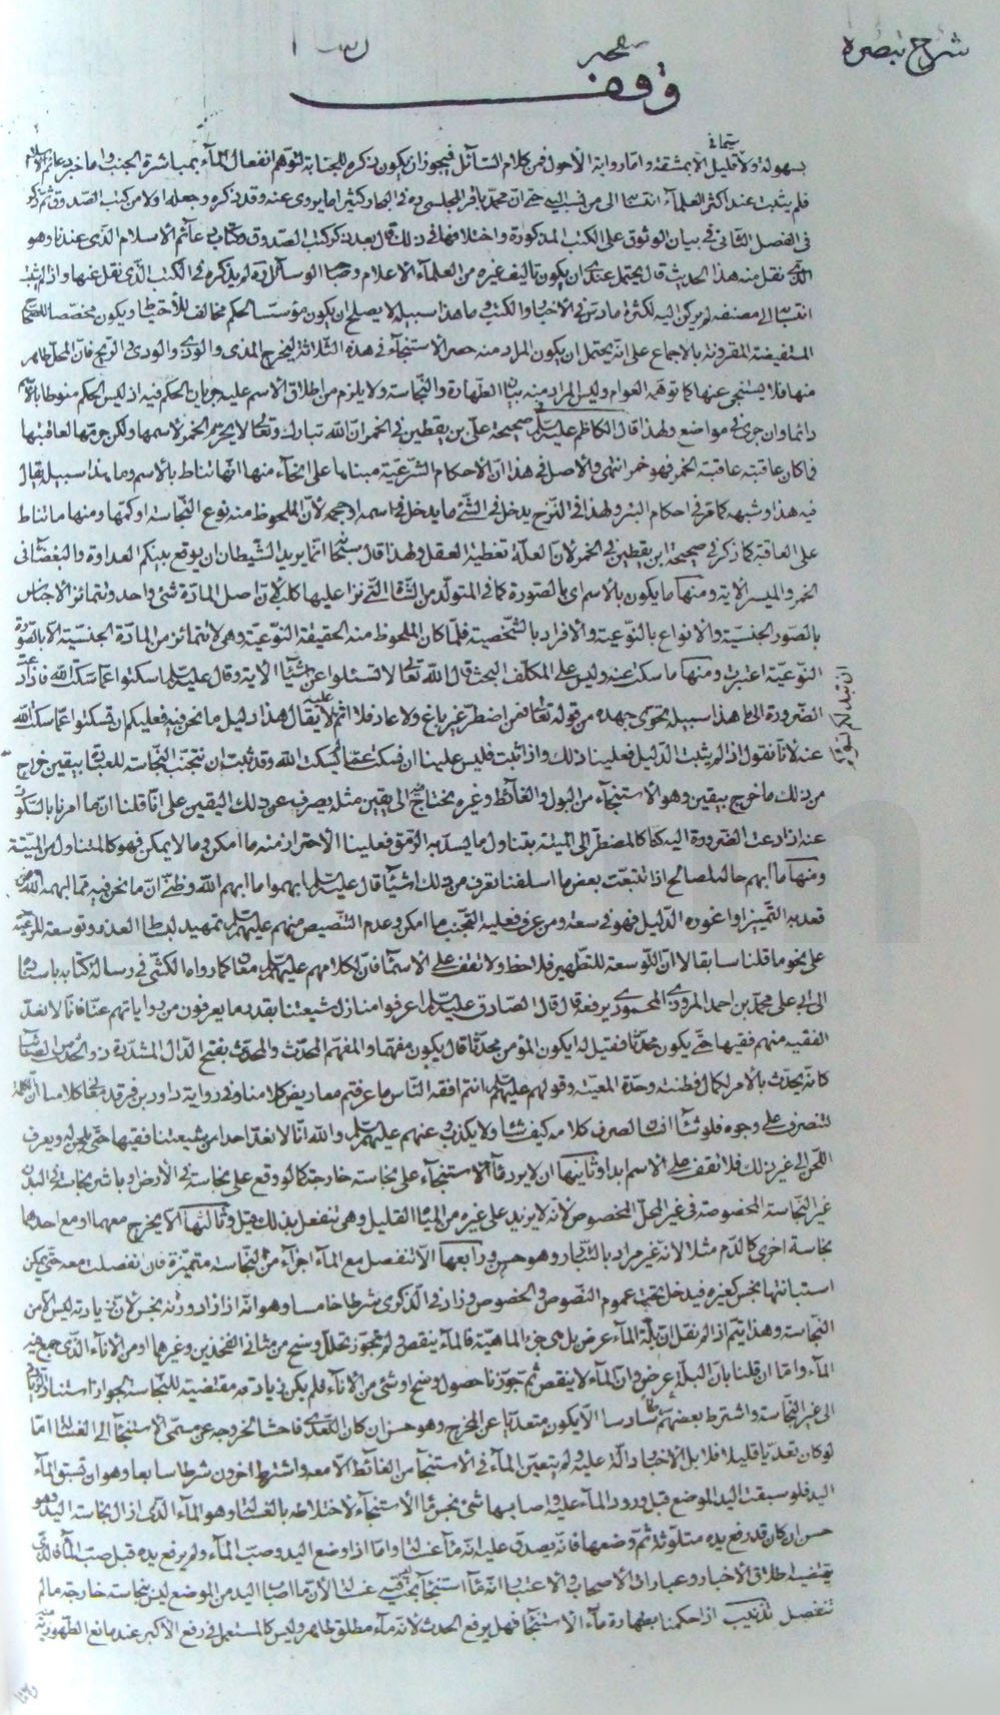 شرح تبصرة
وقف
بسهولة ولا قليل الا بمشقة واما رواية الأحول فمن كلام السائل فيجوز ان يكون ذكره للجنابة لتوهم انفعال الماء بمباشرة الجنب واما خبر دعائم الاسلام
فلم يثبت عند اكثر العلماء انتسابه الى من نسب اليه حتى ان محمد باقر المجلسي ره في البحار كثيرا ما يروى عنه وقد ذكره وجعله اولا من كتب الصدوق ثم ذكر
في الفصل الثاني في بيان الوثوق على الكتب المذكورة واختلافها في ذلك قال بعد ذكر كتب الصدوق وكتاب دعائم الاسلام الذي عندنا وهو
الذي نقل منه هذا الحديث قال يحتمل عندي ان يكون تاليف غيره من العلماء الاعلام وصاحب الوسائل ره لم يذكره في الكتب الذي نقل عنها واذا لم يثبت
انتسابه الى مصنفه لم يركن اليه لكثرة ما دس في الاخبار والكتب وما هذا سبيله لا يصلح ان يكون مؤسسا لحكم مخالف للاحتياط ويكون مخصصا للصحاح
المستفيضة المقرونة بالاجماع على انه يحتمل ان يكون المراد منه حصر الاستنجاء في هذه الثلاثة ليخرج المذي والوذي والودي والريح فان المحل طاهر
منها فلا يستنجى عنها كما توهمه العوام وليس المراد منه بيان الطهارة والنجاسة ولا يلزم من اطلاق الاسم عليه جريان الحكم فيه اذ ليس الحكم منوطا بالاسم
دائما وان جرى في مواضع ولهذا قال الكاظم عليه السلام في صحيحة علي بن يقطين في الخمر ان الله تبارك وتعالى لم يحرم الخمر لاسمها ولكن حرمها لعاقبتها
فما كان عاقبته عاقبة الخمر فهو خمر انتهى والاصل في هذا ان الاحكام الشرعية مبناها على انحاء منها انها تناط بالاسم وما هذا سبيل يقال
فيه هذا وشبهه كما قرر في احكام البئر ولهذا في النزح يدخل في الشئ ما يدخل في اسمه لان الملحوظ منه نوع النجاسة او كمها ومنها ما تناط
على العاقبة كما ذكر في صحيحة ابن يقطين في الخمر لان العلة تغطية العقل ولهذا قال سبحانه انما يريد الشيطان ان يوقع بينكم العداوة والبغضاء في
الخمر والميسر الاية ومنها ما يكون بالاسم اي بالصورة كما في المتولد من الشاة التي نزا عليها كلب لان اصل المادة شئ واحد وتمائز الاجناس
بالصور الجنسية والانواع بالنوعية والافراد بالشخصية فلما كان الملحوظ منه الحقيقة النوعية وهي لا تتمائز من المادة الجنسية الا بالصورة
النوعية اعتبرت ومنها ما سكت عنه وليس على المكلف البحث قال الله تعالى لا تسئلوا عن اشياء الاية وقال عليه السلام اسكتوا عما سكت الله فاذا دعت
الضرورة الى ما هذا سبيله نحوى جهده من قوله تعالى فمن اضطر غير باغ ولا عاد فلا اثم عليه لا يقال هذا دليل ما نحن فيه فعليكم ان تسكتوا عما سكت الله
عنه لانا نقول اذا لم يثبت الدليل فعلينا ذلك واذا ثبت فليس علينا ان نسكت عما لم يسكت الله وقد ثبت ان نتجنب النجاسة للعبادة بيقين خرج
من ذلك ما خرج بيقين وهو الاستنجاء من البول والغائط وغيره يحتاج الى يقين مثله يصرف عن ذلك اليقين على انا قلنا ان ما امرنا بالسكوت
عنه اذا دعت الضرورة اليه كما كالمضطر الى الميتة يتناول ما يسد به الرمق فعلينا الاحتراز منه ما امكن وما لا يمكن فهو كالمتناول من الميتة
ومنها ما ابهم حاله لمصالح اذا تتبعت بعض ما اسلفنا تعرف من ذلك اشياء قال عليه السلام ابهموا ما ابهم الله وظني ان ما نحن فيه مما ابهمه الله فمن
قعد به التميز او اعوزه الدليل فهو في سعة ومن عرف فعليه التجنب ما امكن وعدم التنصيص منهم عليهم السلام تمهيد لبسط العذر وتوسعة للرعية
على نحو ما قلنا سابقا لا ان التوسعة للتطهير فلاحظ ولا تقف على الاسم فان لكلامهم عليهم السلام معان كما رواه الكشي في رسالة كتابه باسناده
الى ابي علي محمد بن احمد المروزي المحمودي يرفعه قال قال الصادق عليه السلام اعرفوا منازل شيعتنا بقدر ما يعرفون من رواياتهم عنا فانا لا نعد
الفقيه منهم فقيها حتى يكون محدثا فقيل له ايكون المؤمن محدثا قال يكون مفهما والمفهم المحدث والمحدث بفتح الدال المشددة ذو الحدس الصائب
كانه يحدث بالامر لكمال فطنته وحدة المعيته وقولهم عليهم السلام انتم افقه الناس ما عرفتم معاريض كلامنا وفي رواية داود بن فرقد معاني كلامنا ان الكلمة
لتنصرف على وجوه فلو شاء انسان لصرف كلامه كيف شاء ولا يكذب وعنهم عليهم السلام والله انا لا نعد احدا من شيعتنا فقيها حتى يلحن له ويعرف
اللحن الى غير ذلك فلا تقف على الاسم ابدا وثانيها ان لا يرد ماء الاستنجاء على نجاسة خارجة كما لو وقع على نجاسة في الارض وباشر نجاسة في البدن
غير النجاسة المخصوصة في غير المحل المخصوص لانه لا يزيد على غيره من المياه القليل وهي تنفعل بذلك قيل وثالثها الا يخرج معهما او مع احدهما
نجاسة اخرى كالدم مثلا لانه غير مراد بالتبادر وهو حسن ورابعها الا تنفصل مع الماء اجزاء من النجاسة متميزة فان انفصلت معه حتى يمكن
استبانتها نجس كغيره فيدخل تحت عموم النصوص والخصوص وزاد في الذكرى شرطا خامسا وهو انه اذا زاد وزنه نجس لان زيادته ليس الا من
النجاسة وهذا يتم اذا لم نقل ان بلة الماء عرض بل هي جزء الماهية فالماء ينقص ولم نجوز تحلل وسخ من مثاني الفخذين وغيرهما او من الاناء الذي جمع فيه
الماء واما ان قلنا بان البلل عرض وان الماء لا ينقص ثم جوزنا حصول وسخ او شئ من الاناء فلم يكن زيادته مقتضية للنجاسة لجواز استناد الزيادة
الى غير النجاسة واشترط بعضهم شرطا سادسا الا يكون متعديا عن المخرج وهو حسن ان كان التعدي فاحشا لخروجه عن مسمى الاستنجاء الى الغسل اما
لو كان تعديا قليلا فلا بل الاخبار دالة عليه ولم يتعين الماء في الاستنجاء من الغائط الا معه واشترط اخرون شرطا سابعا وهو ان تسبق الماء
اليد فلو سبقت اليد الموضع قبل ورود الماء عليه واصابها شئ نجس ماء الاستنجاء لاختلاطه بالغسالة وهو الماء الذي ازال نجاسة اليد وهو
حسن ان كان قد رفع يده متلوثة ثم وضعها فانه يصدق عليه انه ماء غسالة واما اذا وضع اليد وصب الماء ولم يرفع يده قبل صب الماء فالذي
يقتضيه اطلاق الاخبار وعبارات الاصحاب والاعتبار انه ماء استنجاء بخلاف غسالة لان ما اصاب اليد من الموضع ليس نجاسة خارجة ما لم
تنفصل تذنيب اذا حكمنا بطهارة ماء الاستنجاء فهل يرفع الحدث لانه ماء مطلق طاهر وليس كالمستعمل في رفع الاكبر عند مانع الطهورية